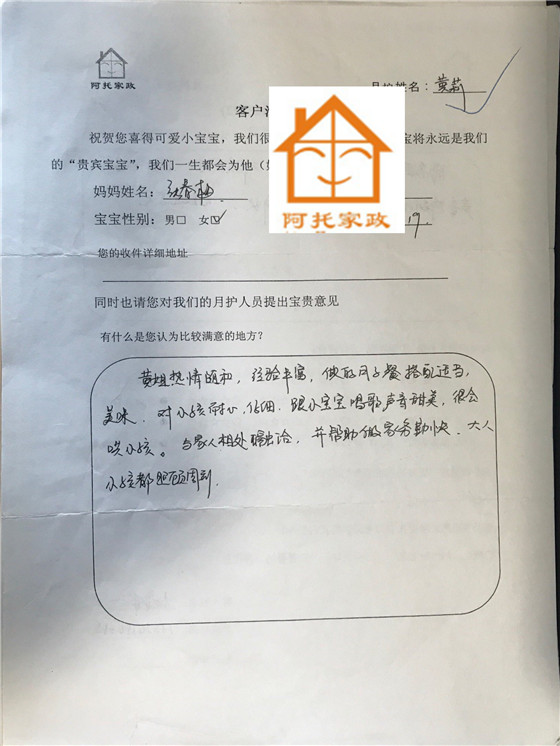 阿托家政
月护姓名：黄莉
客户
祝贺您喜得可爱小宝宝，我们很 宝将永远是我们
的“贵宾宝宝”，我们一生都会为他（
阿托家政
妈妈姓名：张春梅
宝宝性别： 男□ 女☑ 19.
您的收件详细地址
同时也请您对我们的月护人员提出宝贵意见
有什么是您认为比较满意的地方？
黄姐热情随和，经验丰富，做的月子餐搭配适当，
美味．对小孩耐心，仔细．跟小宝宝唱歌声音甜美，很会
哄小孩。与家人相处融洽，并帮助做家务勤快．大人
小孩都照顾周到．